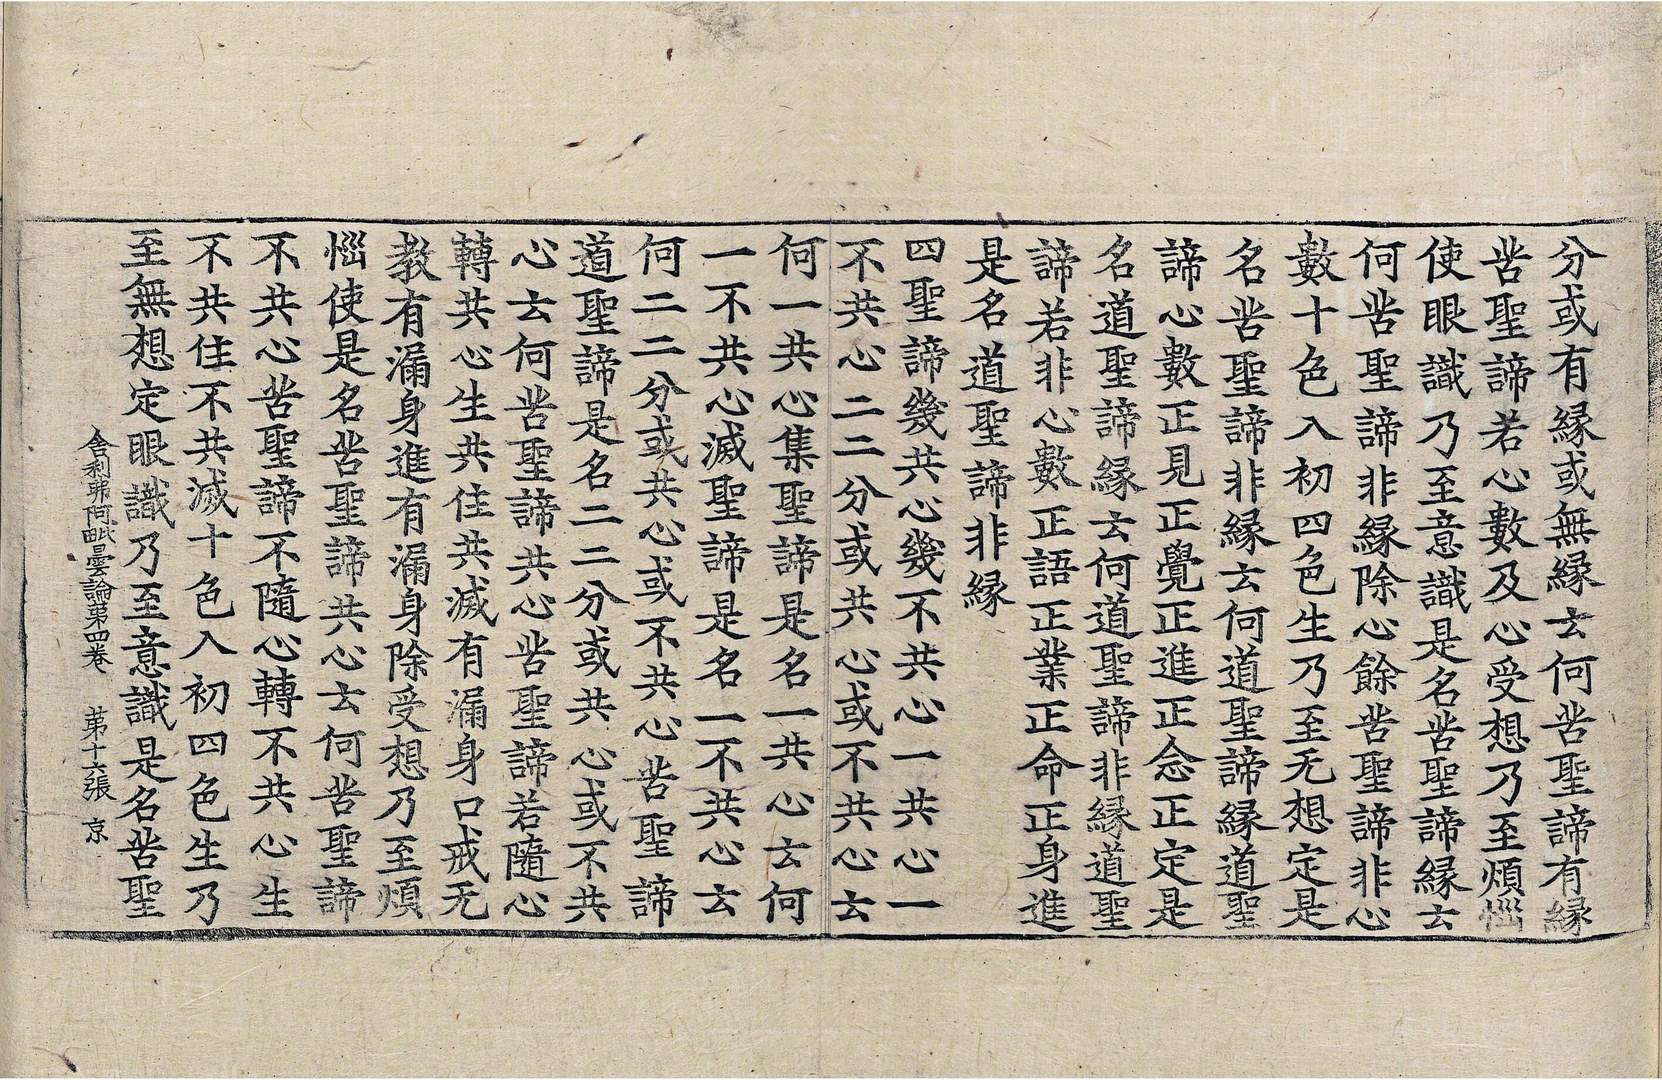 分或有縁或無縁云何苦聖諦有縁
苦聖諦若心數及心受想乃至煩惱
使眼識乃至意識是名苦聖諦縁云
何苦聖諦非縁除心餘苦聖諦非心
數十色入初四色生乃至无想定是
名苦聖諦非縁云何道聖諦縁道聖
諦心數正見正覺正進正念正定是
名道聖諦縁云何道聖諦非縁道聖
諦若非心數正語正業正命正身進
是名道聖諦非縁
四聖諦幾共心幾不共心一共心一
不共心二二分或共心或不共心云
何一共心集聖諦是名一共心云何
一不共心滅聖諦是名一不共心云
何二二分或共心或不共心苦聖諦
道聖諦是名二二分或共心或不共
心云何苦聖諦共心苦聖諦若隨心
轉共心生共住共滅有漏身口戒无
教有漏身進有漏身除受想乃至煩
惱使是名苦聖諦共心云何苦聖諦
不共心苦聖諦不隨心轉不共心生
不共住不共滅十色入初四色生乃
至無想定眼識乃至意識是名苦聖
舍利弗阿毗曇論第四卷 第十六張 京